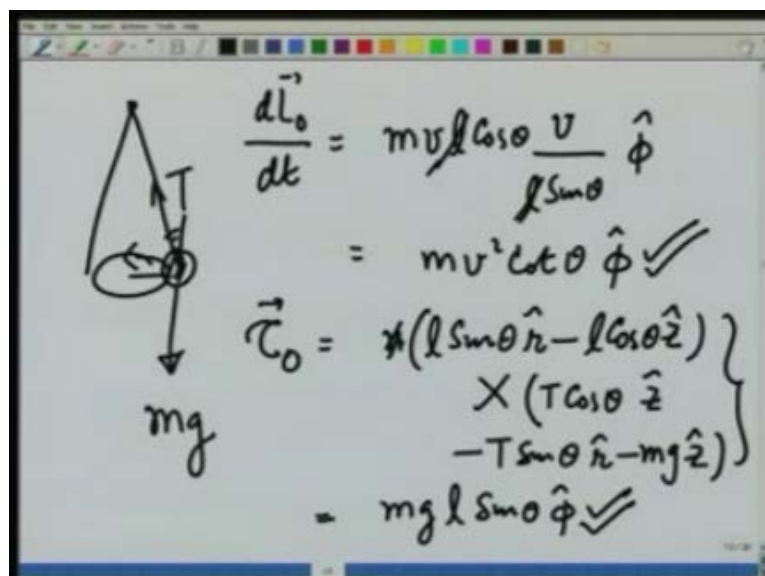 dL⃗₀/dt = mvl̸ Cosθ v/(l̸ Sinθ) φ̂
= mv² Cot θ φ̂ ✓✓
T
τ⃗₀ = (l Sinθ r̂ − l Cosθ ẑ)
× (T Cosθ ẑ
− T Sinθ r̂ − mg ẑ)
mg
= mg l Sinθ φ̂ ✓✓